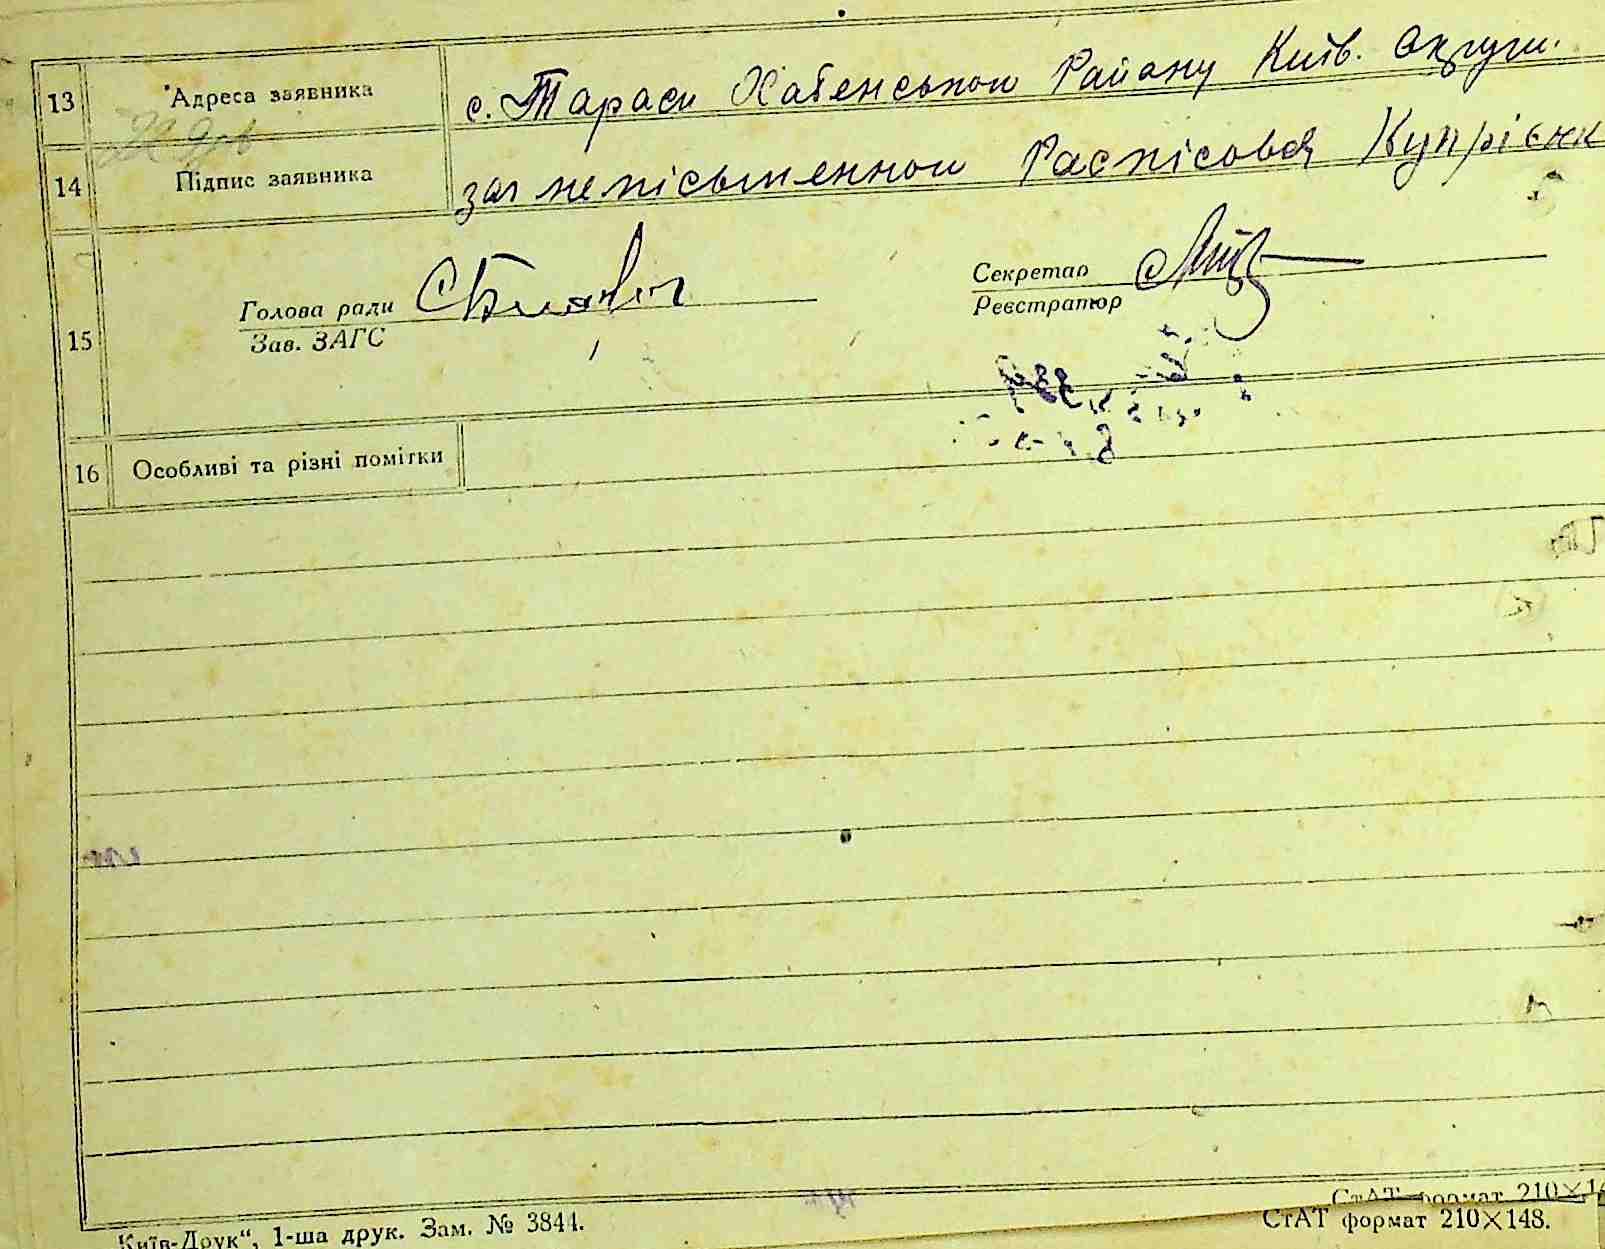 13 Адреса заявника с. Тараси Хабенського Району Київ. Округи.
14 Підпис заявника за непісьменного Распісовся Купрієнк
15 Голова ради
Зав. ЗАГС
Секретар
Реєстратор
16 Особливі та різні помітки
СтАТ формат 210×14
Київ-Друк“, 1-ша друк. Зам. № 3844.
СтАТ формат 210×148.